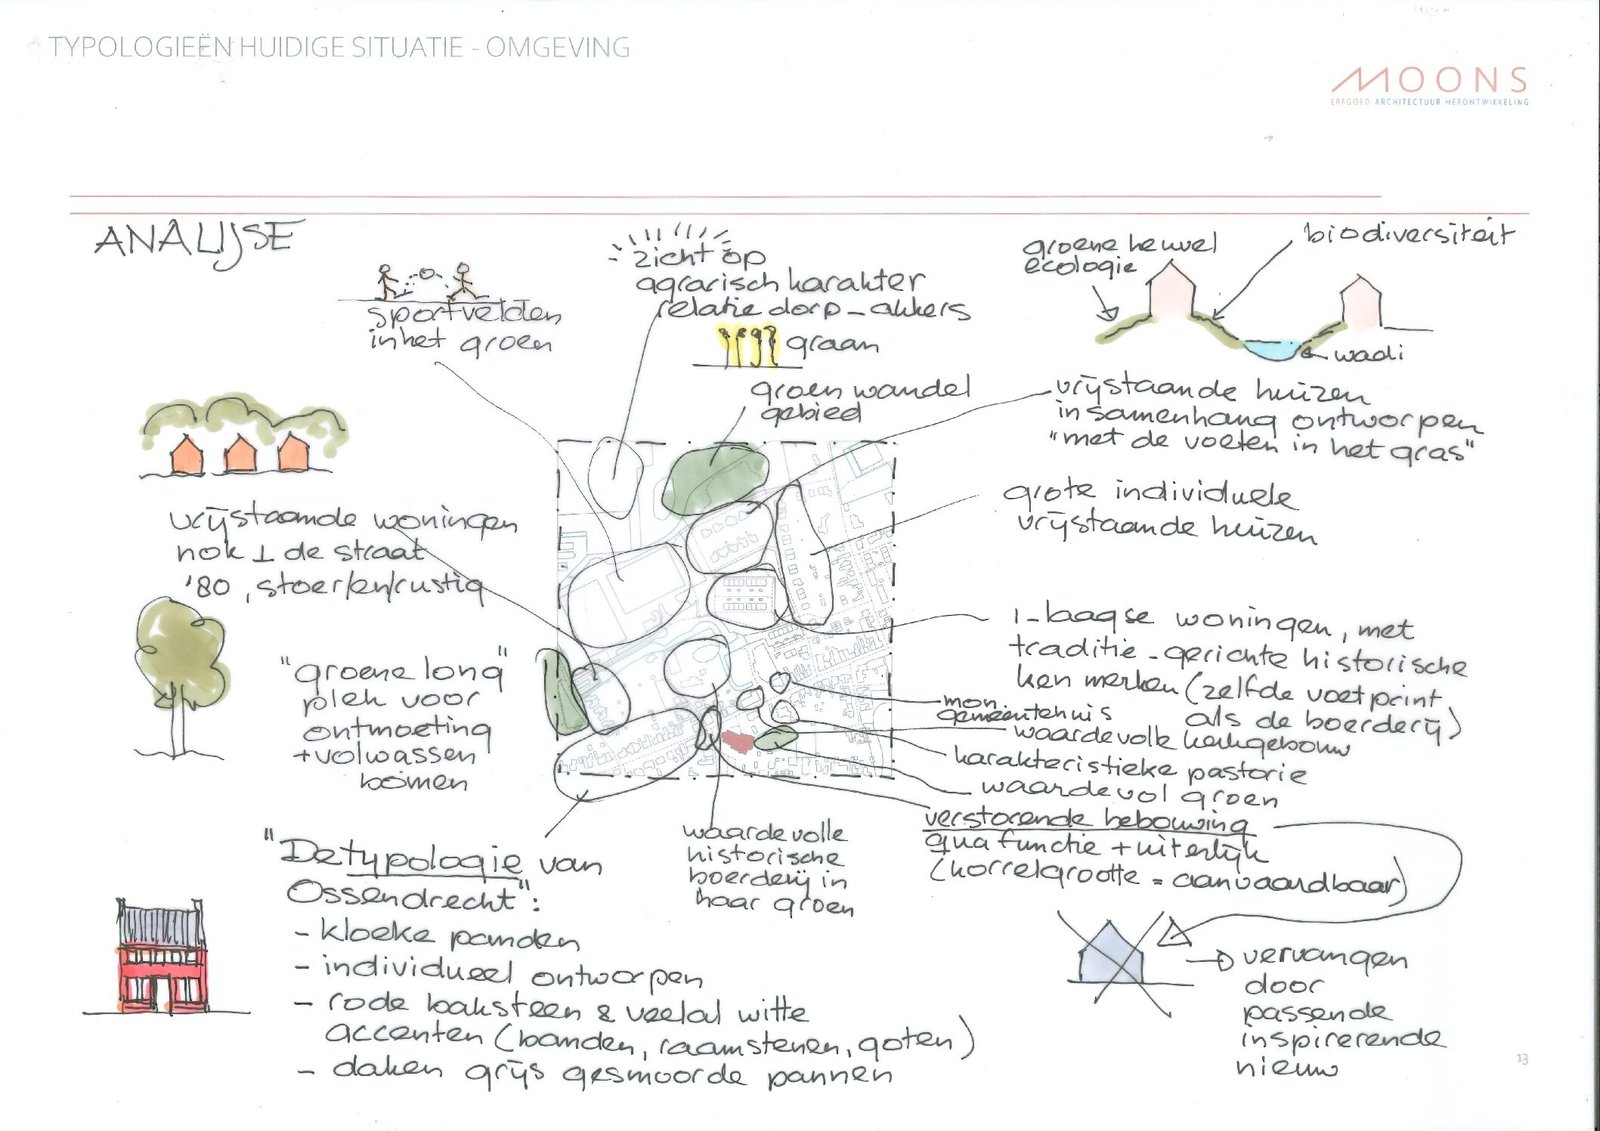 TYPOLOGIEËN HUIDIGE SITUATIE - OMGEVING
MOONS
ERFGOED ARCHITECTUUR HERONTWIKKELING
ANALIJSE
sportvelden
in het groen
zicht op
agrarisch karakter
relatie dorp - akkers
graan
groen wandel
gebied
groene heuvel
ecologie
biodiversiteit
wadi
vrijstaande huizen
in samenhang ontworpen
"met de voeten in het gras"
grote individuele
vrijstaande huizen
vrijstaande woningen
nok ⊥ de straat
'80, stoer/en/rustig
"groene long"
plek voor
ontmoeting
+ volwassen
bomen
1-laagse woningen, met
traditie-gerichte historische
kenmerken (zelfde voetprint
als de boerderij)
mon.
gemeentehuis
waardevolle kerkgebouw
karakteristieke pastorie
waardevol groen
verstorende bebouwing
qua functie + uiterlijk
(korrelgrootte = aanvaardbaar)
waardevolle
historische
boerderij in
haar groen
"De typologie van
Ossendrecht":
- kloeke panden
- individueel ontworpen
- rode baksteen & veelal witte
accenten (banden, raamstenen, goten)
- daken grijs gesmoorde pannen
vervangen
door
passende
inspirerende
nieuw
13